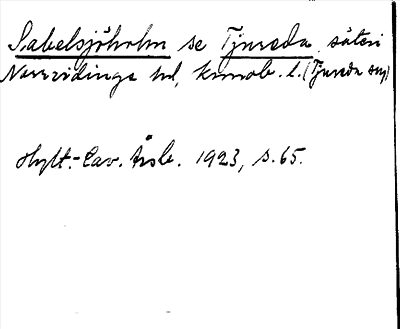 Sabelsjöholm se Tjureda, säteri
Norrvidinge hd, Kronob. l. (Tjureda sn)
Hylt.-Cav. Årsb. 1923, s. 65.